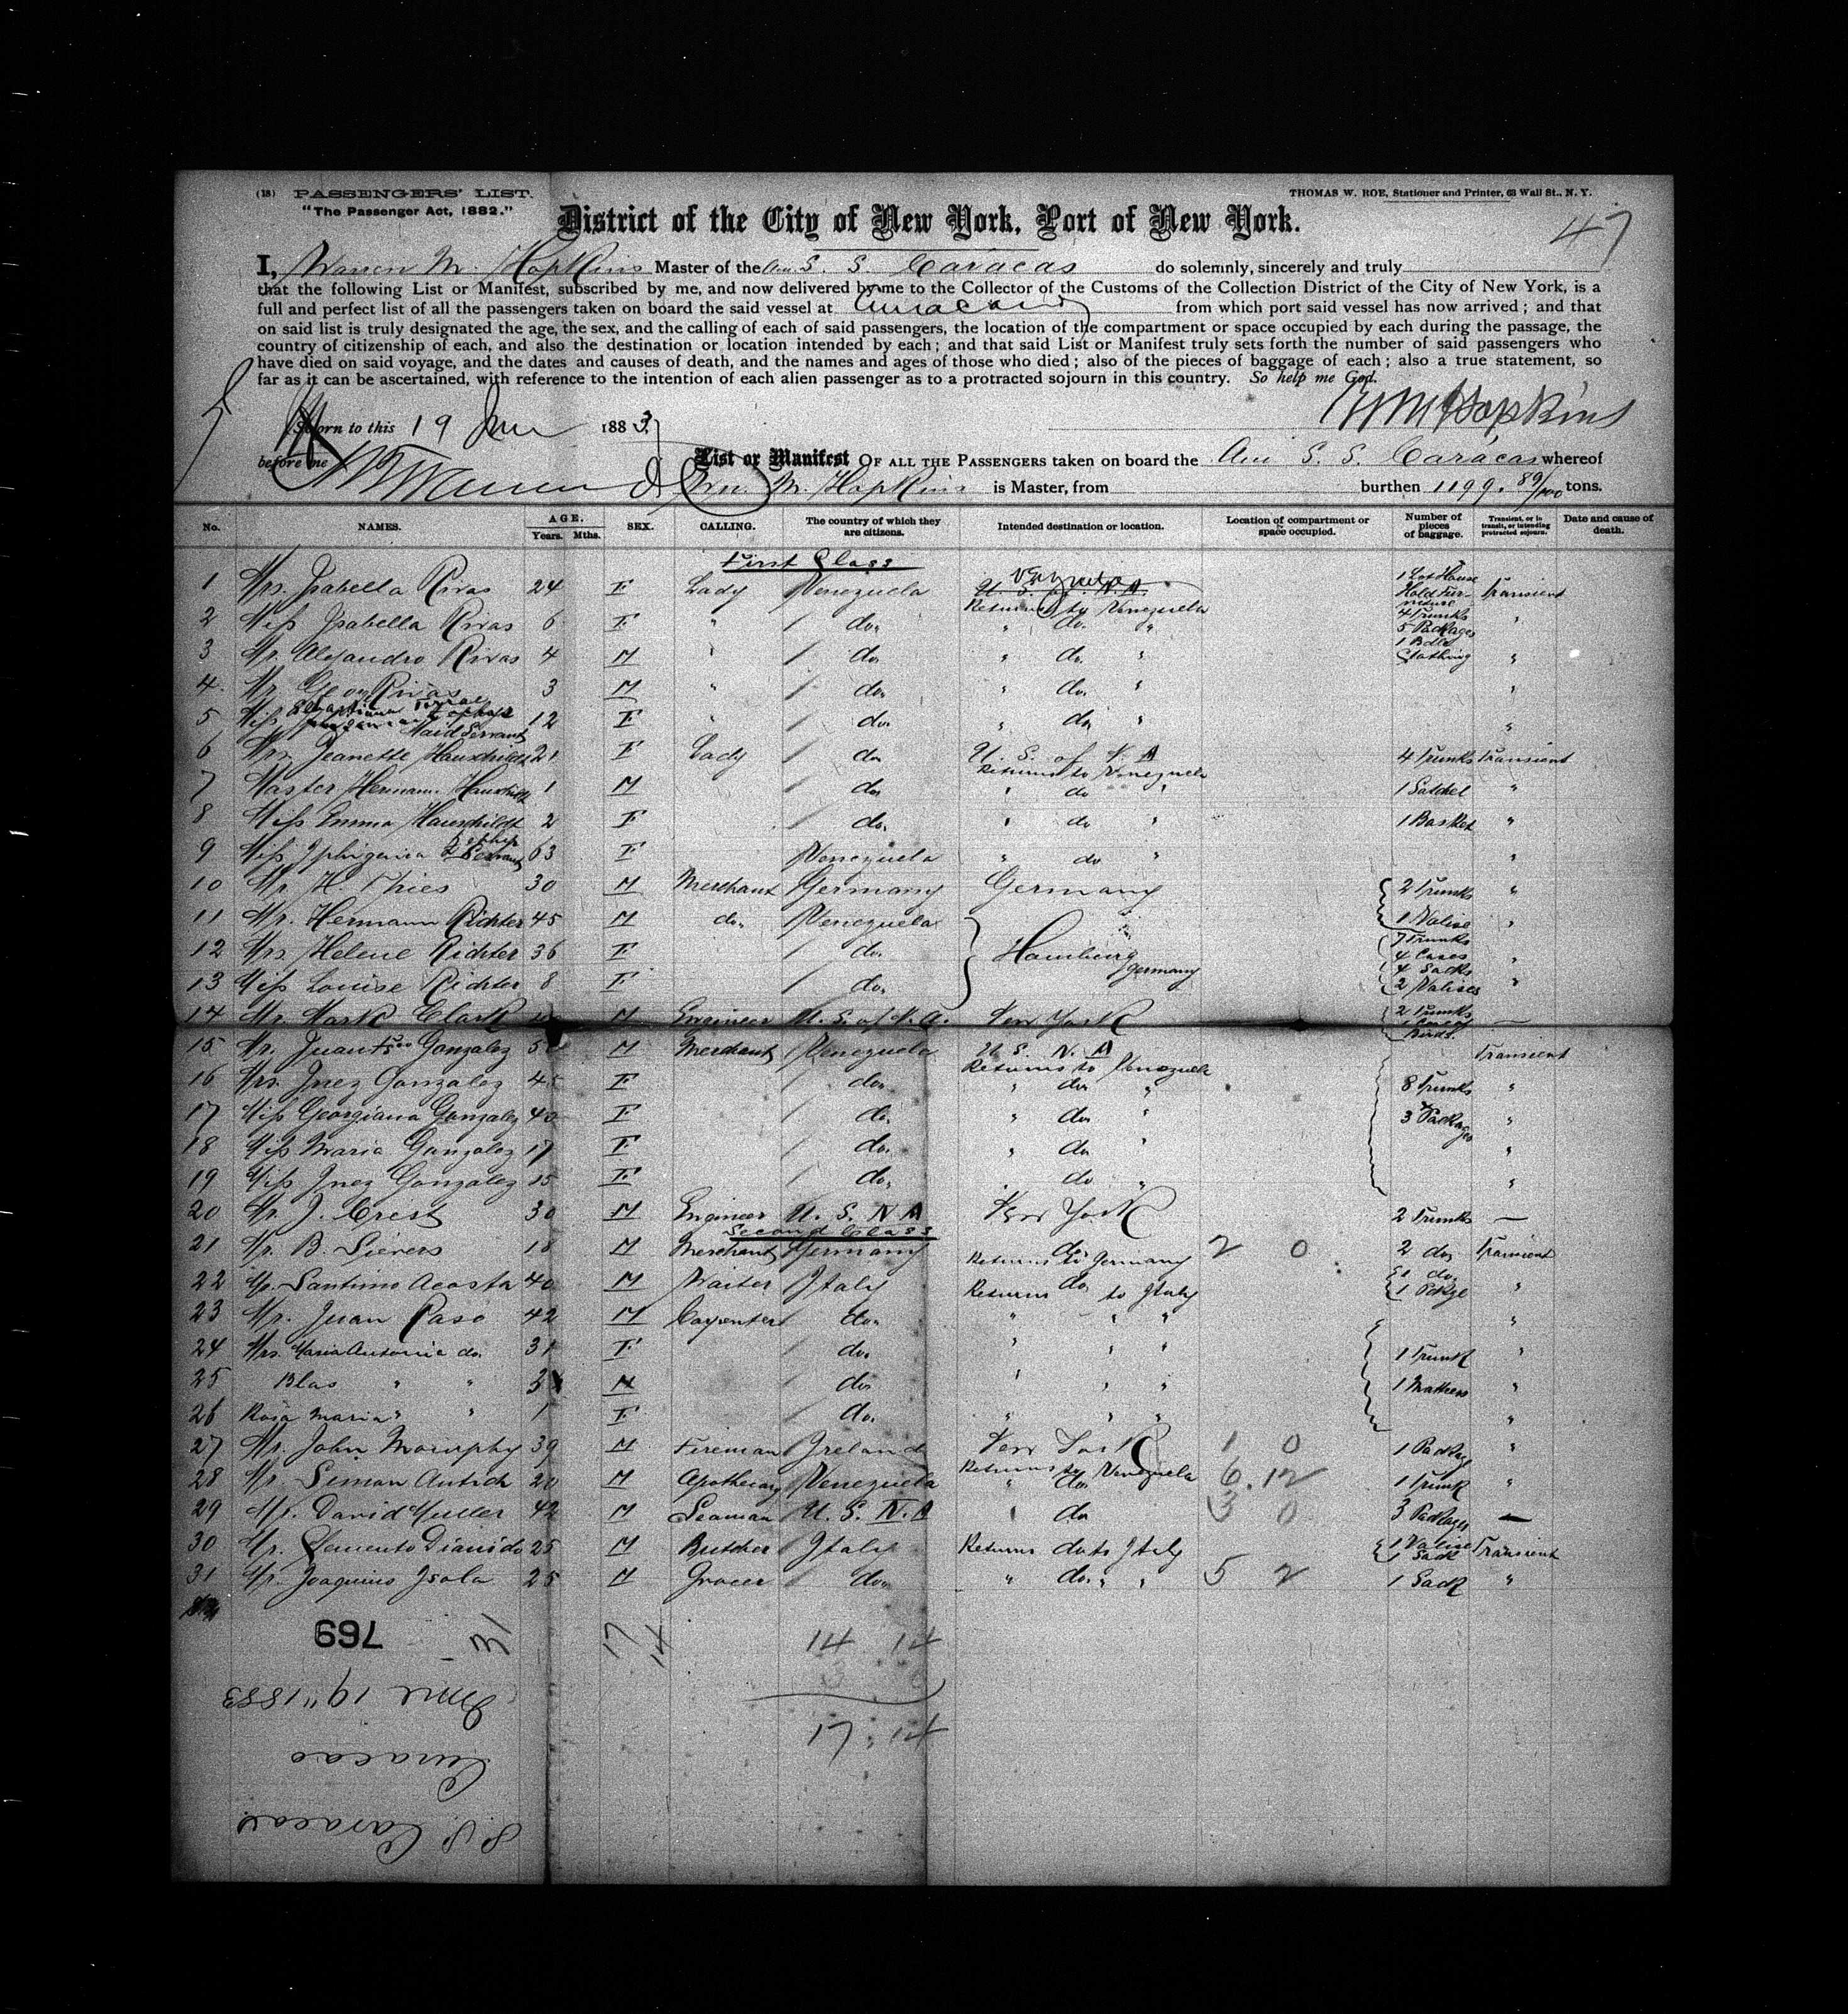 (18) PASSENGERS' LIST.
"The Passenger Act, 1882."
THOMAS W. ROE, Stationer and Printer, 63 Wall St., N. Y.
District of the City of New York, Port of New York.
47
I, Warren M. Hopkins Master of the Am. S. S. Caracas do solemnly, sincerely and truly
that the following List or Manifest, subscribed by me, and now delivered by me to the Collector of the Customs of the Collection District of the City of New York, is a
full and perfect list of all the passengers taken on board the said vessel at Curacao from which port said vessel has now arrived; and that
on said list is truly designated the age, the sex, and the calling of each of said passengers, the location of the compartment or space occupied by each during the passage, the
country of citizenship of each, and also the destination or location intended by each; and that said List or Manifest truly sets forth the number of said passengers who
have died on said voyage, and the dates and causes of death, and the names and ages of those who died; also of the pieces of baggage of each; also a true statement, so
far as it can be ascertained, with reference to the intention of each alien passenger as to a protracted sojourn in this country. So help me God.
WM Hopkins
Sworn to this 19 June 1883
before me
List or Manifest OF ALL THE PASSENGERS taken on board the Am S. S. Caracas whereof
Wm. M. Hopkins is Master, from burthen 1199. 89/100 tons.
No. NAMES. AGE. Years. Mths. SEX. CALLING. The country of which they are citizens. Intended destination or location. Location of compartment or space occupied. Number of pieces of baggage. Transient, or in transit, or intending protracted sojourn. Date and cause of death.
First Class
1 Mrs. Isabella Rivas 24 F Lady Venezuela Venezuela U. S. N. A. Returns to Venezuela 1 Lot House Hold Furniture Transient
2 Miss Isabella Rivas 6 F " do. " do. " 4 Trunks 5 Packages "
3 Mr. Alejandro Rivas 4 M " do. " do. " 1 Bdle Clothing "
4 Mr. Rivas 3 M " do. " do. " "
5 Miss Maid Servant 12 F " do. " do. " "
6 Mrs. Jeanette Hauschildt 21 F Lady do. U. S. of N. A Returns to Venezuela 4 Trunks Transient
7 Master Hermann Hauschildt 1 M do. " do " 1 Satchel "
8 Miss Emma Hauschildt 2 F do. " do " 1 Basket "
9 Miss Iphigenia Servant 63 F Venezuela " do " "
10 Mr. H. Thies 30 M Merchant Germany Germany 2 Trunks "
11 Mr. Hermann Richter 45 M do. Venezuela 1 Valise "
12 Mrs. Helene Richter 36 F do. Hamburg Germany 7 Trunks 4 Cases "
13 Miss Louise Richter 8 F do. 4 Sacks 2 Valises "
14 Mr. Mark Clark M Engineer U. S. of N. A. New York 2 Trunks Birds. —
15 Mr. Juan Gonzalez M Merchant Venezuela U S. N. A Returns to Venezuela Transient
16 Mrs. Inez Gonzalez 45 F do. " do. " 8 Trunks "
17 Miss Georgiana Gonzalez 40 F do. " do. " 3 Packages "
18 Miss Maria Gonzalez 17 F do. " do "
19 Miss Inez Gonzalez 15 F do. " do " "
20 Mr. J. Crest 30 M Engineer U. S. N A New York 2 Trunks —
Second Class
21 Mr. B. Sievers 18 M Merchant Germany do. Returns to Germany 2 0 2 do. Transient
22 Mr. Santimo Acosta 40 M Waiter Italy do. Returns to Italy 1 do. 1 Pckge "
23 Mr. Juan Paso 42 M Carpenter do. " " " "
24 Mrs. Maria Antonia do. 31 F do. " " " 1 Trunk "
25 Blas " " 3 M do. " " " 1 Mattress "
26 Rosa Maria " " 1 F do. " " " "
27 Mr. John Mourphy 39 M Fireman Ireland New York 1 0 1 Package "
28 Mr. Simon Antich 20 M Apothecary Venezuela Returns to Venezuela " do. 6 . 12 1 Trunk "
29 Mr. David Muller 42 M Seaman U. S. N. A " do 3 0 3 Packages —
30 Mr. 25 M Butcher Italy Returns do. to Italy 1 Valise 1 Sack Transient
31 Mr. Joaquino Isola 25 M Grocer do. " do. " " 5 2 1 Sack "
769
31
17 14
14 14
3 0
17 . 14
June 19" 1883
Curacao
S.S. Caracas